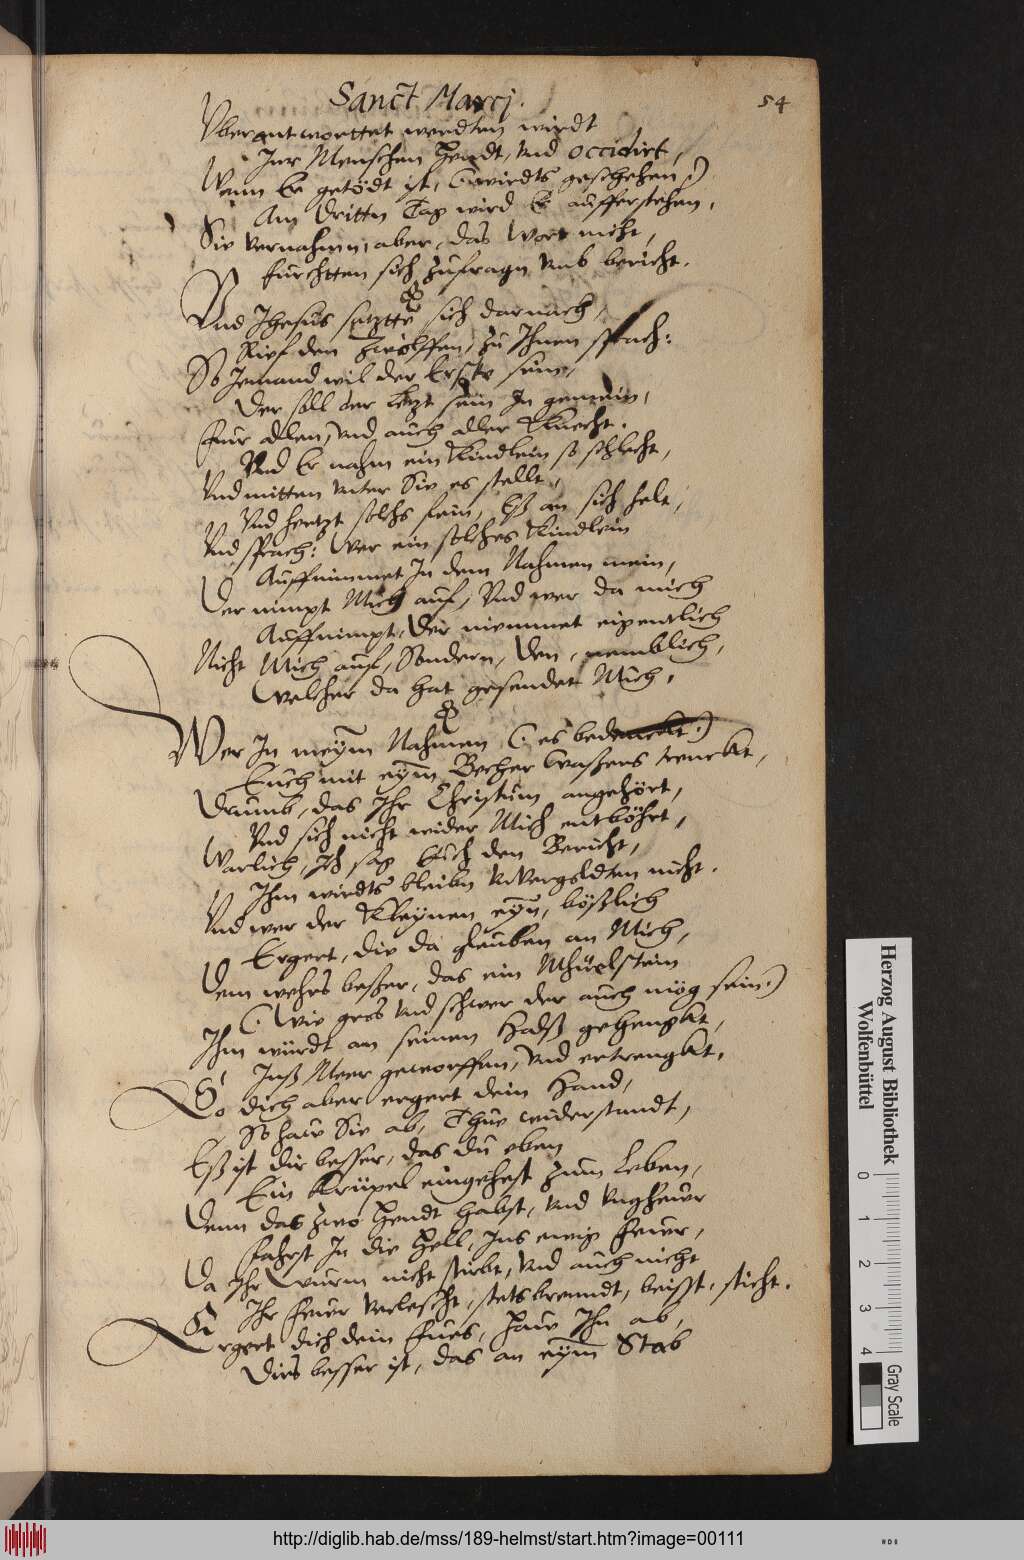 Sanct Marcj.
54
Vberantworttet werdten wirdt
Inn Menschen Hendt, vnd occidirt,
Wenn Er getödt ist, (: wirdts geschehen :)
Am dritten Tag wird Er aufferstehen,
Sie vernahmen aber, das Wort nicht,
furchtten sich zufragn vmb bericht.
Vnd Jhesus satztte sich darnach,
Rief den Zwölffen, zu Ihnen sprach:
So Jemand wil der Erste sein,
Der soll der letzt sein In gemein,
fur allen, vnd auch aller Knecht.
Vnd Er nahm ein Kindlein so schlecht,
Vnd mitten vnter Sie es stellt,
Vnd hertzt solchs fein, Eß an sich helt,
Vnd sprach: Wer ein solches Kindlein
Auffnimmet In dem Nahmen mein,
Der nimpt Mich auf, Vnd wer da mich
Auffnimpt, Der niemmet eigentlich
Nicht Mich auf, Sondern, Den, nemblich,
Welcher da hat gesendet Mich.
Wer In meym Nahmen (: es bedenckt :)
Euch mit eym Becher Waßers trenckt,
Drumb, das Ihr Christum angehört,
Vnd sich nicht wider Mich entböhrt,
Warlich, Ich sag Euch den Bericht,
Ihm wirdts bleibn vnvergoldten nicht.
Vnd wer der Kleynen eyn, bößlich
Ergert, die da glauben an Mich,
Dem wehrs beßer, das ein Mhüelstein
(: Wie gros vnd schwer der auch mög sein :)
Ihm würdt an seinen Halß gehengkt,
Inß Meer geworffen, vnd ertrengkt.
So dich aber ergert dein Hand,
So haw Sie ab, Thue widerstandt,
Eß ist dir besser, das du eben
Ein Krüpel eingehest zum Leben,
Denn das zwo Hendt habst, vnd vngheur
fahrst In die Hell, Ins ewig feuer,
Da Ihr Wurm nicht stirbt, vnd auch nicht
Ihr feur verlescht, stets brenndt, beisst, sticht.
Ergert dich dein fues, haw Ihn ab,
Dirs besser ist, das an eym Stab
Herzog August Bibliothek
Wolfenbüttel
0 1 2 3 4
Gray Scale
http://diglib.hab.de/mss/189-helmst/start.htm?image=00111